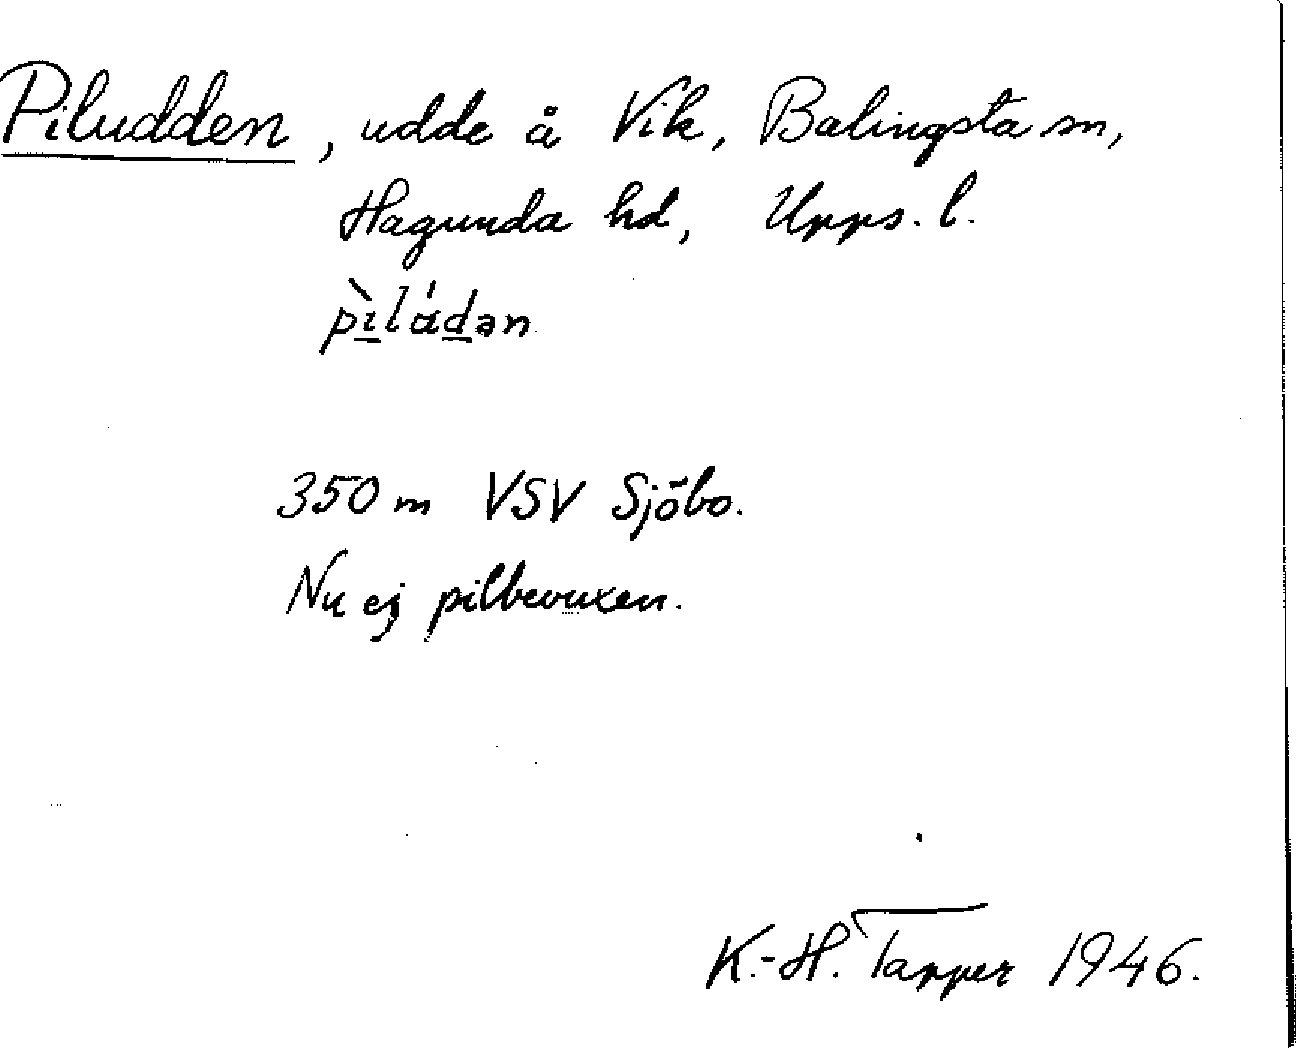 Piludden, udde å Vik, Balingsta sn,
Hagunda hd, Upps. l.
pìládən
350 m VSV Sjöbo.
Nu ej pilbevuxen.
K.-H. Tapper 1946.